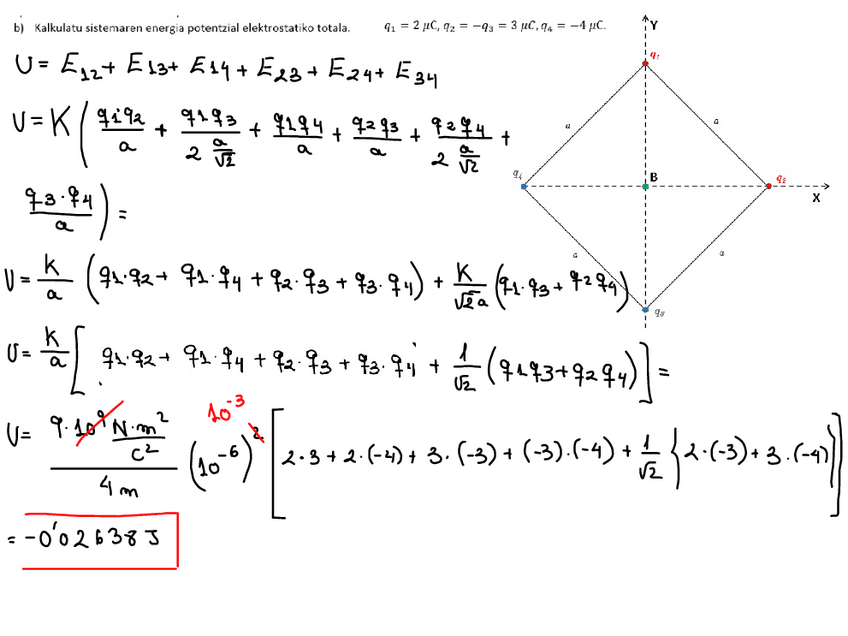 b) Kalkulatu sistemaren energia potentzial elektrostatiko totala. q₁ = 2 μC, q₂ = −q₃ = 3 μC, q₄ = −4 μC.
Y
q₁
U = E₁₂ + E₁₃ + E₁₄ + E₂₃ + E₂₄ + E₃₄
a a
U = K ( q₁q₂/a + q₁q₃/(2 a/√2) + q₁q₄/a + q₂q₃/a + q₂q₄/(2 a/√2) +
q₄ B q₂
X
q₃·q₄/a ) =
a a
U = k/a (q₁·q₂ + q₁·q₄ + q₂·q₃ + q₃·q₄) + K/(√2 a) (q₁·q₃ + q₂q₄)
q₃
U = k/a [ q₁·q₂ + q₁·q₄ + q₂·q₃ + q₃·q₄ + 1/√2 (q₁q₃ + q₂q₄) ] =
10⁻³
U = 9·10⁹ N·m²/C² / 4 m (10⁻⁶)² [ 2·3 + 2·(−4) + 3·(−3) + (−3)·(−4) + 1/√2 { 2·(−3) + 3·(−4) } ]
= −0'02638 J